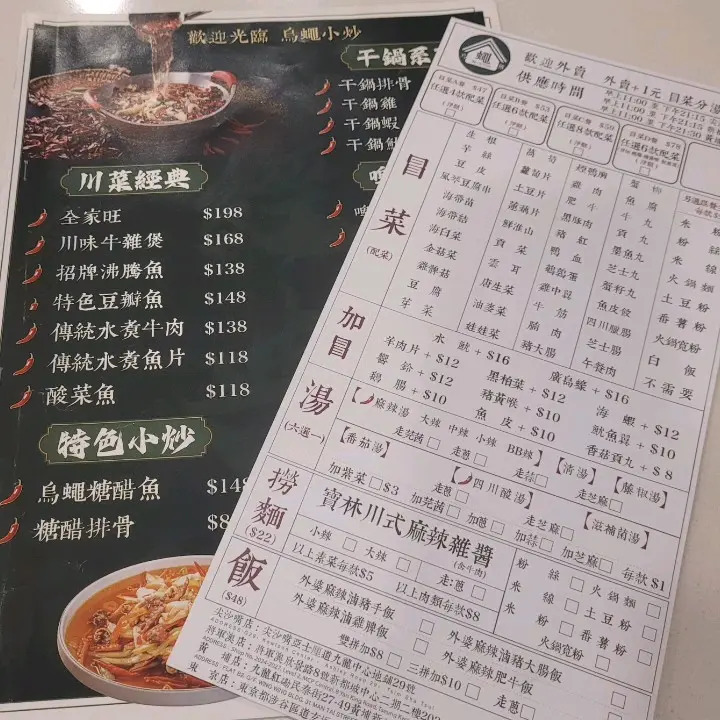 歡迎光臨 烏蠅小炒
干鍋系
干鍋排骨
干鍋雞
干鍋蝦
干鍋
川菜經典
全家旺 $198
川味牛雜煲 $168
招牌沸騰魚 $138
特色豆瓣魚 $148
傳統水煮牛肉 $138
傳統水煮魚片 $118
酸菜魚 $118
特色小炒
烏蠅糖醋魚 $148
糖醋排骨 $8
蠅
歡迎外賣 外賣+1元
供應時間
早上11:00 至 下午21:15
早上11:00 至 下午21:30
冒菜A餐 $47
任選4款配菜
(淨類)
冒菜B餐 $53
任選6款配菜
(淨類)
冒菜C餐 $59
任選8款配菜
(淨類)
冒菜D餐 $78
任選6款配菜
(淨類)
冒菜
(配菜)
生根
芋絲
豆皮
海帶苗
海帶結
海白菜
金菇菜
雞髀菇
豆腐
芽菜
萵筍
蘿蔔片
土豆片
蓮藕片
鮮淮山
貢菜
雲耳
唐生菜
油麥菜
娃娃菜
煙鴨胸
雞肉
肥牛
豬紅
鴨血
鵪鶉蛋
雞中翼
牛筋
腩肉
豬大腸
蟹柳
魚腐
牛丸
貢丸
墨魚丸
芝士丸
蟹籽丸
魚皮餃
四川臘腸
芝士腸
午餐肉
米粉
粉絲
米線
火鍋麵
土豆粉
番薯粉
火鍋寬粉
白飯
不需要
加冒
水魷+$16
廣島蠔+$16
羊肉片+$12
黑柏葉+$12
海蝦+$12
響鈴+$12
豬黃喉+$10
魷魚鬚+$10
鵝腸+$10
魚皮+$10
香菇貢丸+$8
湯
(六選一)
【麻辣湯 大辣 中辣 小辣 BB辣】【清湯】【藤椒湯】
走芫茜□ 走蔥□ 走蒜□ 走芝麻□
【番茄湯】【四川酸湯】【滋補菌湯】
加紫菜□$3 走蔥□ 走芝麻□
加芫茜□ 加蔥□ 加蒜□ 加芝麻□ 每款$1
撈麵
($22)
寶林川式麻辣雜醬
(含牛肉)
小辣□ 大辣□ 走蔥□
以上素菜每款$5 以上肉類每款$8
粉絲□ 火鍋麵□
米線□ 土豆粉□
米粉□ 番薯粉□
火鍋寬粉□
飯
($48)
外婆麻辣滷豬手飯□
外婆麻辣滷雞髀飯□
外婆麻辣滷豬大腸飯□
外婆麻辣肥牛飯□
雙拼加$8□ 三拼加$10□
尖沙咀店：尖沙咀亞士厘道九龍中心地舖29號
將軍澳店：將軍澳欣景路8號新都城中心二期二樓
黃埔店：九龍紅磡民泰街27-49黃埔
東京店：東京都涉谷區道玄